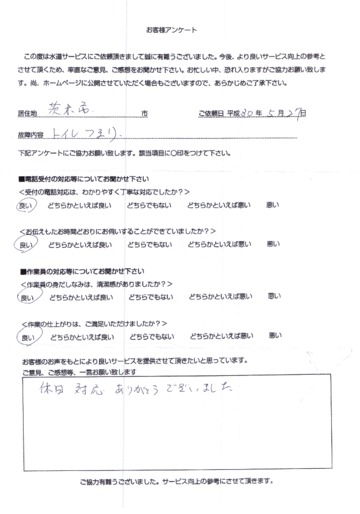 お客様アンケート
この度は水道サービスにご依頼頂きまして誠に有難うございました。今後、より良いサービス向上の参考と
させて頂くため、率直なご意見、ご感想をお聞かせ下さい。お忙しい中、恐れ入りますがご協力お願い致しま
す。尚、ホームページに公開させていただく場合もございますので、あらかじめご了承下さい。
居住地 茨木市 市 ご依頼日 平成30年 5月27日
故障内容 トイレつまり.
下記アンケートにご協力お願い致します。該当項目に〇印をつけて下さい。
■電話受付の対応等についてお聞かせ下さい
<受付の電話対応は、わかりやすく丁寧な対応でしたか?>
良い どちらかといえば良い どちらでもない どちらかといえば悪い 悪い
<お伝えもしたお時間どおりにお伺いすることができていましたか?>
良い どちらかといえば良い どちらでもない どちらかといえば悪い 悪い
■作業員の対応等についてお聞かせ下さい
<作業員の身だしなみは、清潔感がありましたか?>
良い どちらかといえば良い どちらでもない どちらかといえば悪い 悪い
<作業の仕上がりは、ご満足いただけましたか?>
良い どちらかといえば良い どちらでもない どちらかといえば悪い 悪い
お客様のお声をもとにより良いサービスを提供させて頂きたいと思っています。
ご意見、ご感想等、一言お願い致します
休日 対応 ありがとうございました
ご協力有難うございました。サービス向上の参考にさせて頂きます。